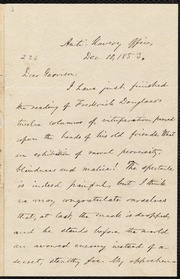 Anti-Slavery Office,
Dec. 18, 1853.
Dear Garrison,
I have just finished
the reading of Frederick Douglass's
twelve columns of vituperation poured
upon the heads of his old friends. What
an exhibition of moral perversity,
blindness and malice! The spectacle
is indeed painful, but I think
we may congratulate ourselves
that, at last the mask is dropped,
and he stands before the world
an avowed enemy instead of a
secret, stealthy foe. My apprehen-